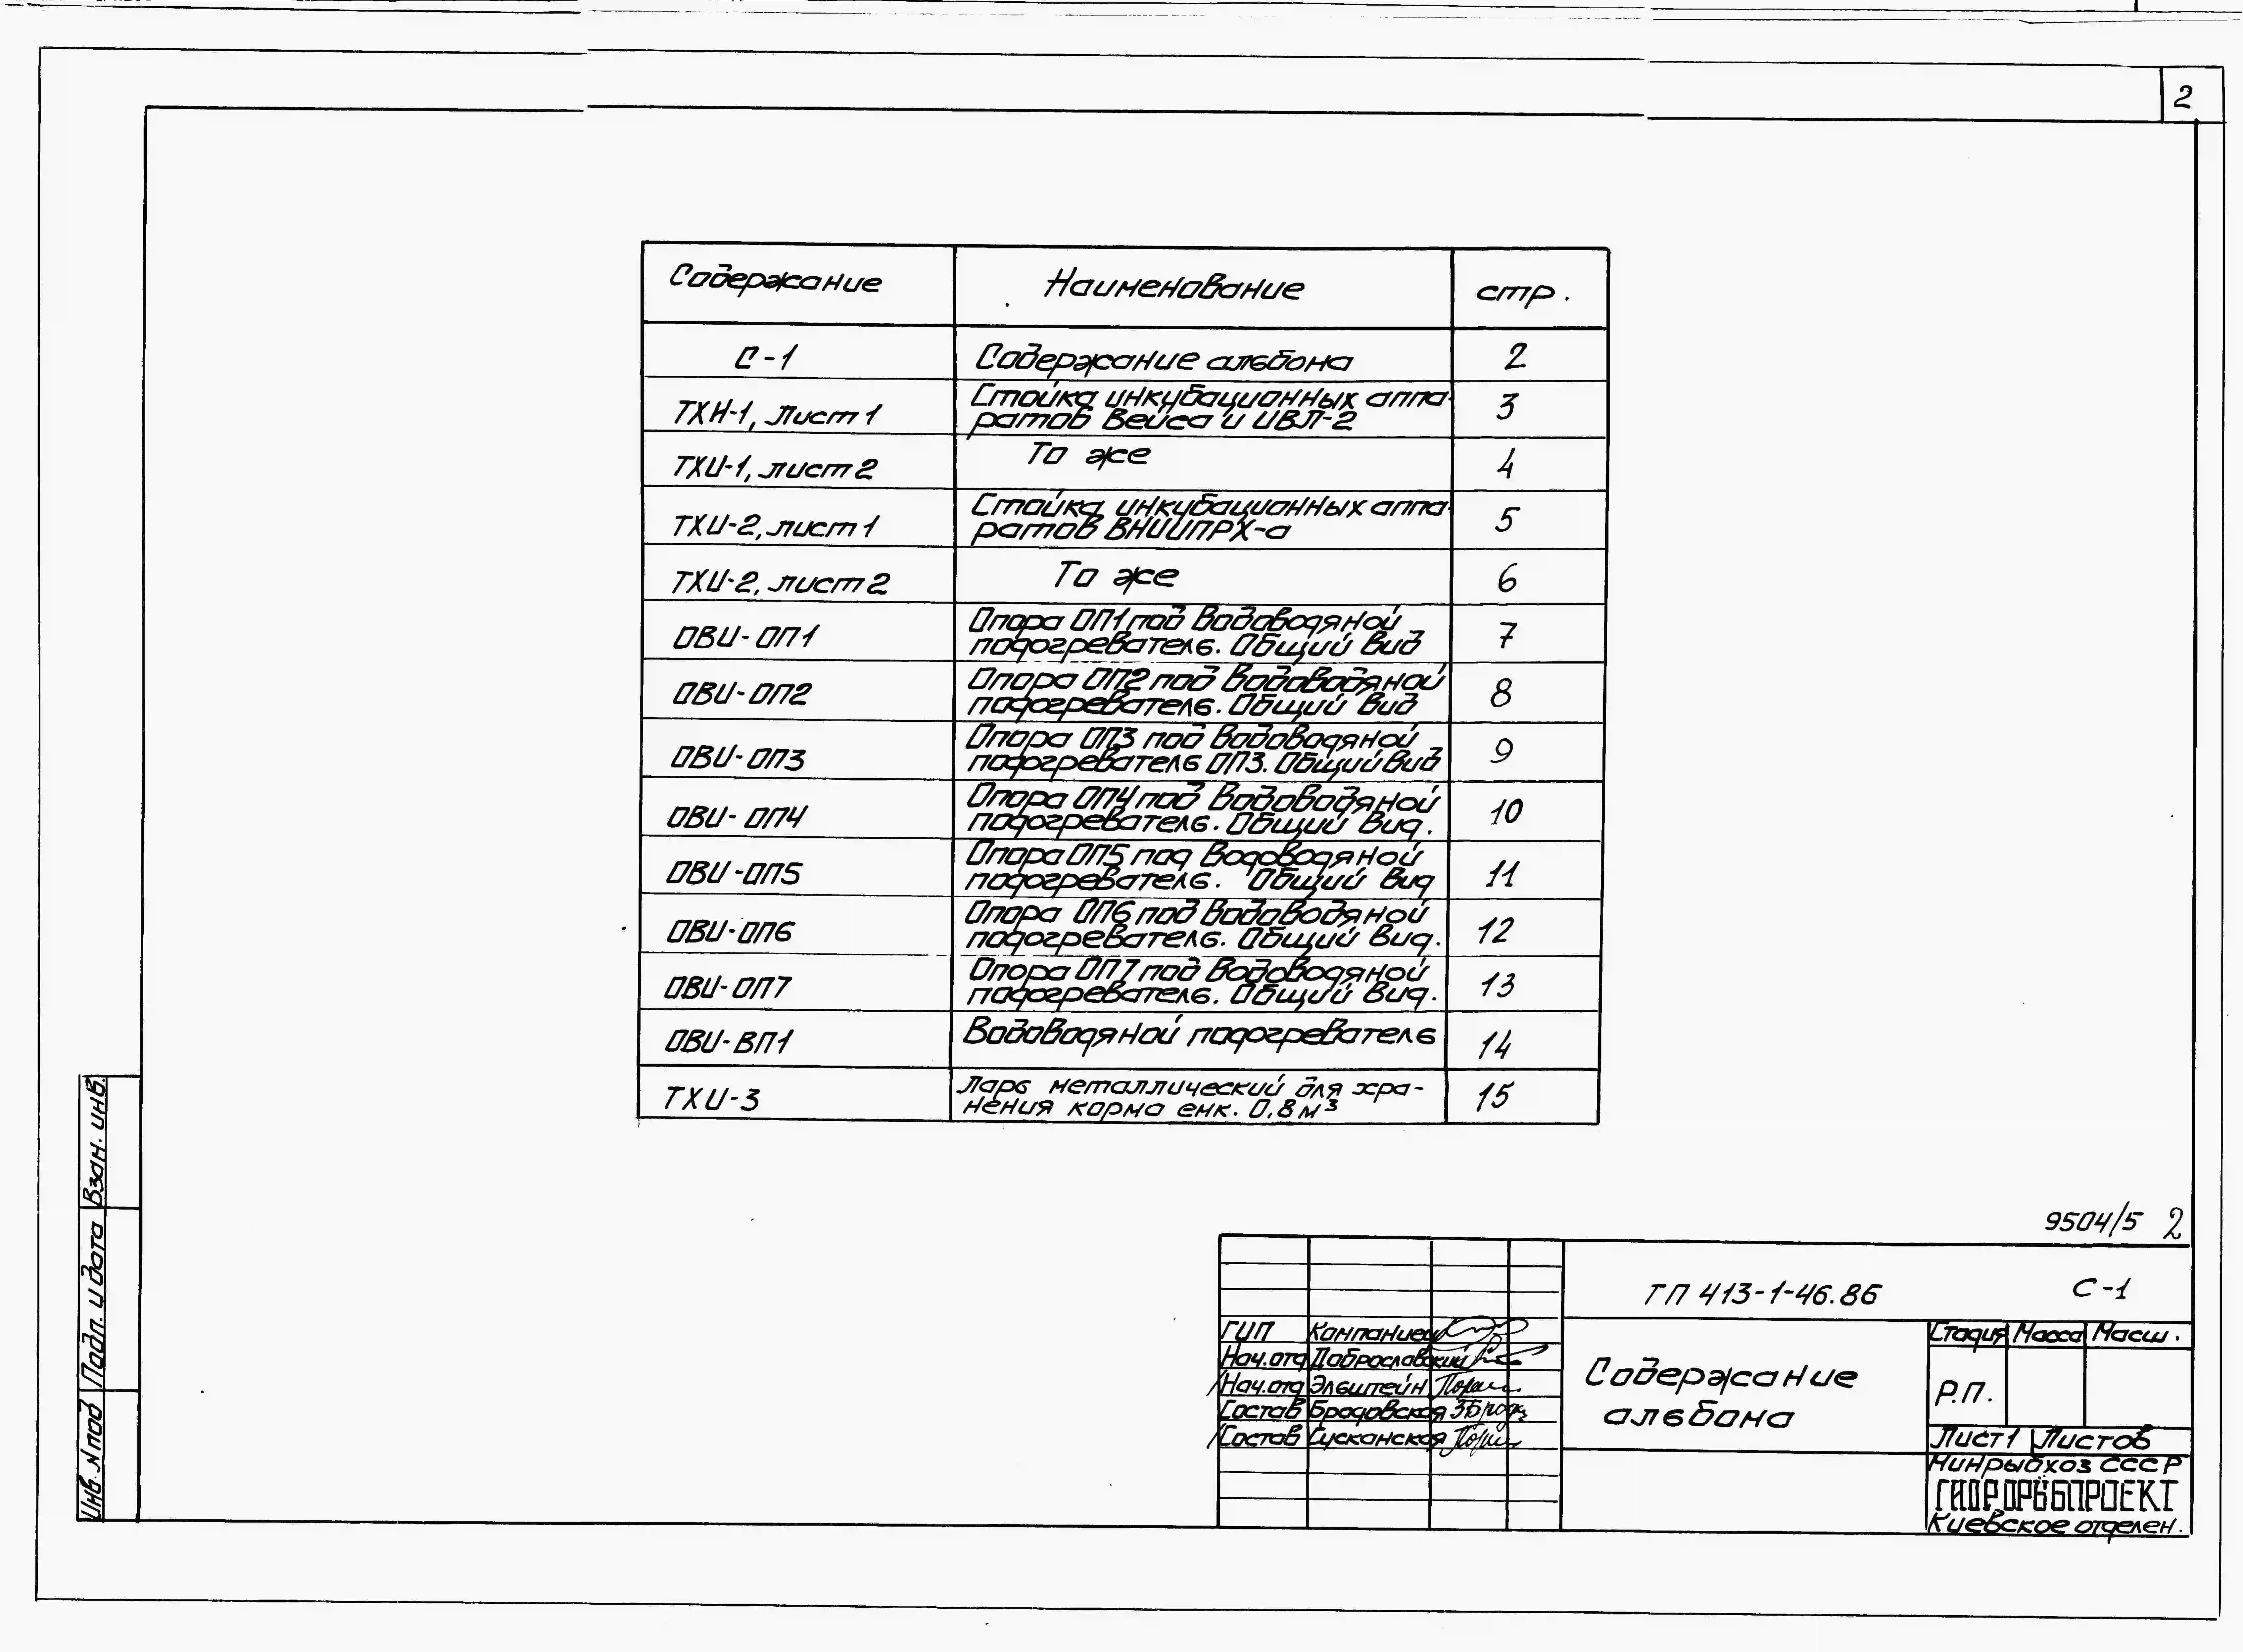 2
Содержание Наименование стр.
С-1 Содержание альбома 2
ТХИ-1, лист 1 Стойка инкубационных аппа-
ратов Вейса и ИВЛ-2 3
ТХИ-1, лист 2 То же 4
ТХИ-2, лист 1 Стойка инкубационных аппа-
ратов ВНИИПРХ-а 5
ТХИ-2, лист 2 То же 6
ОВИ-ОП1 Опора ОП1 под водоводяной
подогреватель. Общий вид 7
ОВИ-ОП2 Опора ОП2 под водоводяной
подогреватель. Общий вид 8
ОВИ-ОП3 Опора ОП3 под водоводяной
подогреватель ОП3. Общий вид 9
ОВИ-ОП4 Опора ОП4 под водоводяной
подогреватель. Общий вид. 10
ОВИ-ОП5 Опора ОП5 под водоводяной
подогреватель. Общий вид 11
ОВИ-ОП6 Опора ОП6 под водоводяной
подогреватель. Общий вид. 12
ОВИ-ОП7 Опора ОП7 под водоводяной
подогреватель. Общий вид. 13
ОВИ-ВП1 Водоводяной подогреватель 14
ТХИ-3 Ларь металлический для хра-
нения корма емк. 0,8 м³ 15
9504/5 2
ТП 413-1-46.86 С-1
ГИП Компаниец
Нач.отд Доброславский
Нач.отд Эльштейн
Состав Бродовская
Состав Сусканская
Содержание
альбома
Стадия Масса Масш.
Р.П.
Лист 1 Листов
Минрыбхоз СССР
ГИДРОРЫБПРОЕКТ
Киевское отделен.
Инв. N под Подп. и дата Взам. инв.